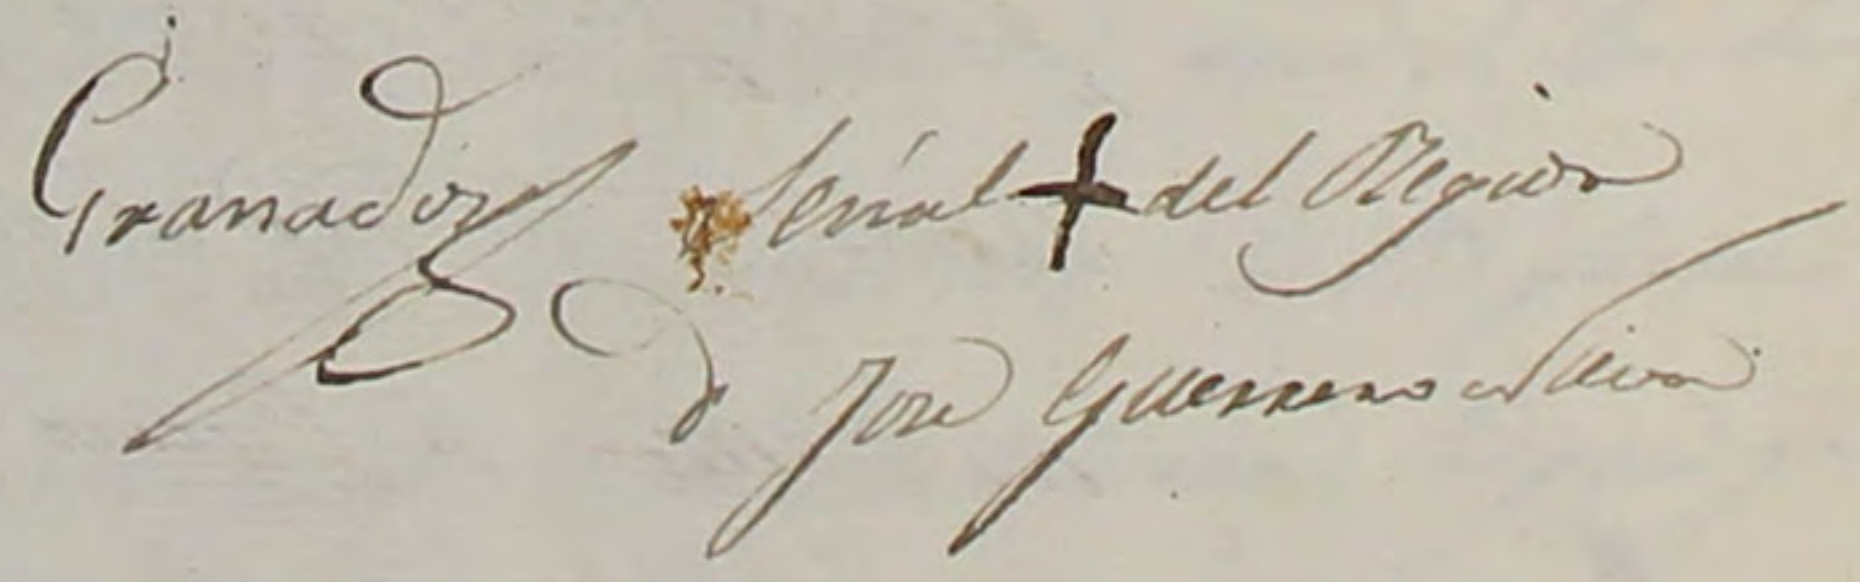 Granados Señal + del Regidor
D. José Guerrero